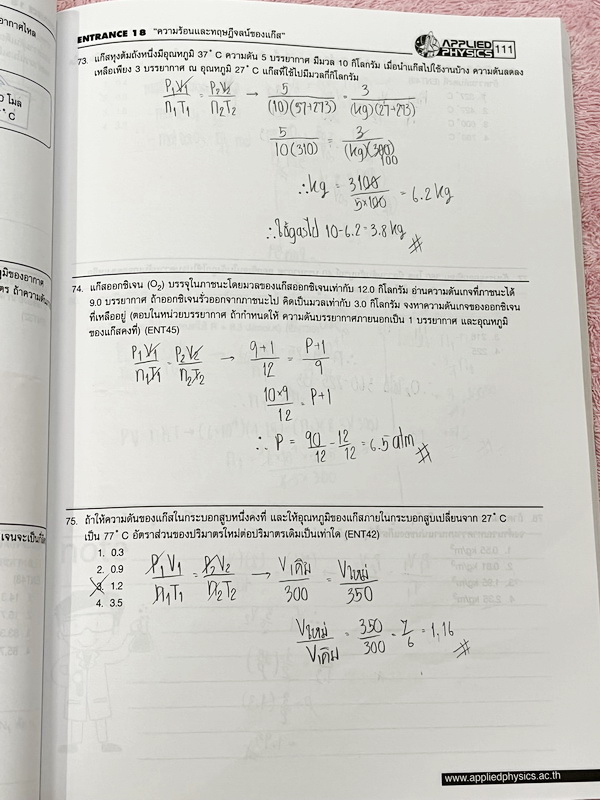 ENTRANCE 18 "ความร้อนและทฤษฎีจลน์ของแก๊ส"
APPLIED PHYSICS 111
73. แก๊สหุงต้มถังหนึ่งมีอุณหภูมิ 37° C ความดัน 5 บรรยากาศ มีมวล 10 กิโลกรัม เมื่อนำแก๊สไปใช้งานบ้าง ความดันลดลง
เหลือเพียง 3 บรรยากาศ ณ อุณหภูมิ 27° C แก๊สที่ใช้ไปมีมวลกี่กิโลกรัม
P₁V₁/n₁T₁ = P₂V₂/n₂T₂ → 5/(10)(37+273) = 3/(kg)(27+273)
5/10(310) = 3/(kg)(300) 100
∴ kg = 3100/5×100 = 6.2 kg
∴ ใช้gasไป 10-6.2 = 3.8 kg
74. แก๊สออกซิเจน (O₂) บรรจุในภาชนะโดยมวลของแก๊สออกซิเจนเท่ากับ 12.0 กิโลกรัม อ่านความดันเกจที่ภาชนะได้
9.0 บรรยากาศ ถ้าออกซิเจนรั่วออกจากภาชนะไป คิดเป็นมวลเท่ากับ 3.0 กิโลกรัม จงหาความดันเกจของออกซิเจน
ที่เหลืออยู่ (ตอบในหน่วยบรรยากาศ ถ้ากำหนดให้ ความดันบรรยากาศภายนอกเป็น 1 บรรยากาศ และอุณหภูมิ
ของแก๊สคงที่) (ENT45)
P₁V₁/n₁T₁ = P₂V₂/n₂T₂ → 9+1/12 = P+1/9
10×9/12 = P+1
∴ P = 90/12 - 12/12 = 6.5 atm
75. ถ้าให้ความดันของแก๊สในกระบอกสูบหนึ่งคงที่ และให้อุณหภูมิของแก๊สภายในกระบอกสูบเปลี่ยนจาก 27° C
เป็น 77° C อัตราส่วนของปริมาตรใหม่ต่อปริมาตรเดิมเป็นเท่าใด (ENT42)
1. 0.3
2. 0.9
3. 1.2
4. 3.5
P₁V₁/n₁T₁ = P₂V₂/n₂T₂ → Vเดิม/300 = Vใหม่/350
Vใหม่/Vเดิม = 350/300 = 7/6 = 1.16
www.appliedphysics.ac.th